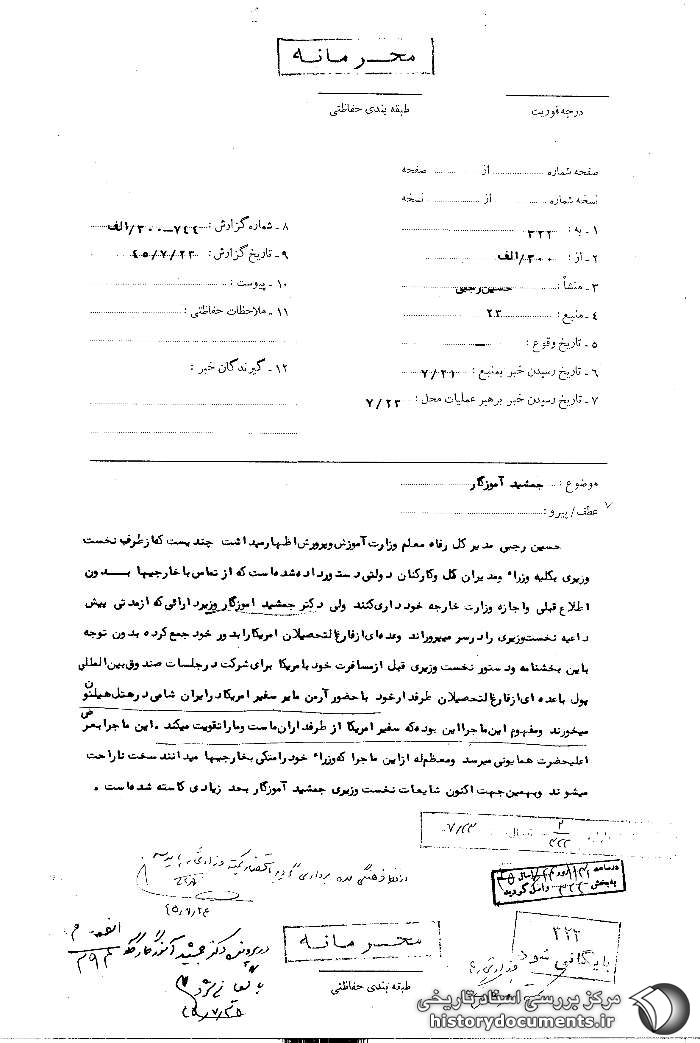 محرمانه
درجه فوریت
طبقه بندی حفاظتی
صفحه شماره از صفحه
نسخه شماره از نسخه
۱ـ به : ۳۲۲
۲ـ از : ۳۰۰/الف
۳ـ منشأ : حسین رجبی
۴ـ منبع : ۲۳
۵ـ تاریخ وقوع : ــ
۶ـ تاریخ رسیدن خبر بمنبع : ۷/۲۱
۷ـ تاریخ رسیدن خبر برهبر عملیات محل : ۷/۲۳
۸ـ شماره گزارش : ۷۴۴ــ۳۰۰/الف
۹ـ تاریخ گزارش : ۴۵/۷/۲۳
۱۰ـ پیوست :
۱۱ـ ملاحظات حفاظتی :
۱۲ـ گیرندگان خبر :
موضوع : جمشید آموزگار
عطف/پیرو :
حسین رجبی مدیر کل رفاه معلم وزارت آموزش وپرورش اظهار میداشت چندیست که از طرف نخست
وزیری بکلیه وزراء ومدیران کل وکارکنان دولتی دستور داده شده است که از تماس با خارجیها بدون
اطلاع قبلی واجازه وزارت خارجه خود داری کنند ولی دکتر جمشید اموزگار وزیر دارائی که از مدتی پیش
داعیه نخست وزیری را در سر میپروراند وعده ای از فارغ التحصیلان امریکا را بدور خود جمع کرده بدون توجه
باین بخشنامه ودستور نخست وزیری قبل از مسافرت خود بامریکا برای شرکت در جلسات صندوق بین المللی
پول با عده ای از فارغ التحصیلان طرفدار خود با حضور آرمن مایر سفیر امریکا در ایران شامی در هتل هیلتون
میخورند ومفهوم این ماجرا این بوده که سفیر امریکا از طرفداران ماست وما را تقویت میکند . این ماجرا بعرض
اعلیحضرت همایونی میرسد ومعظم له از این ماجرا که وزراء خود را متکی بخارجیها میدانند سخت ناراحت
میشوند وبهمین جهت اکنون شایعات نخست وزیری جمشید آموزگار بحد زیادی کاسته شده است .
۲
۳۲۲
۷/۲۳
۴۵/۷/۲۴
در پرونده دکتر جمشید آموزگار
بایگانی شود
۳۲۲
بایگانی شود
محرمانه
طبقه بندی حفاظتی
مرکز بررسی اسناد تاریخی
historydocuments.ir